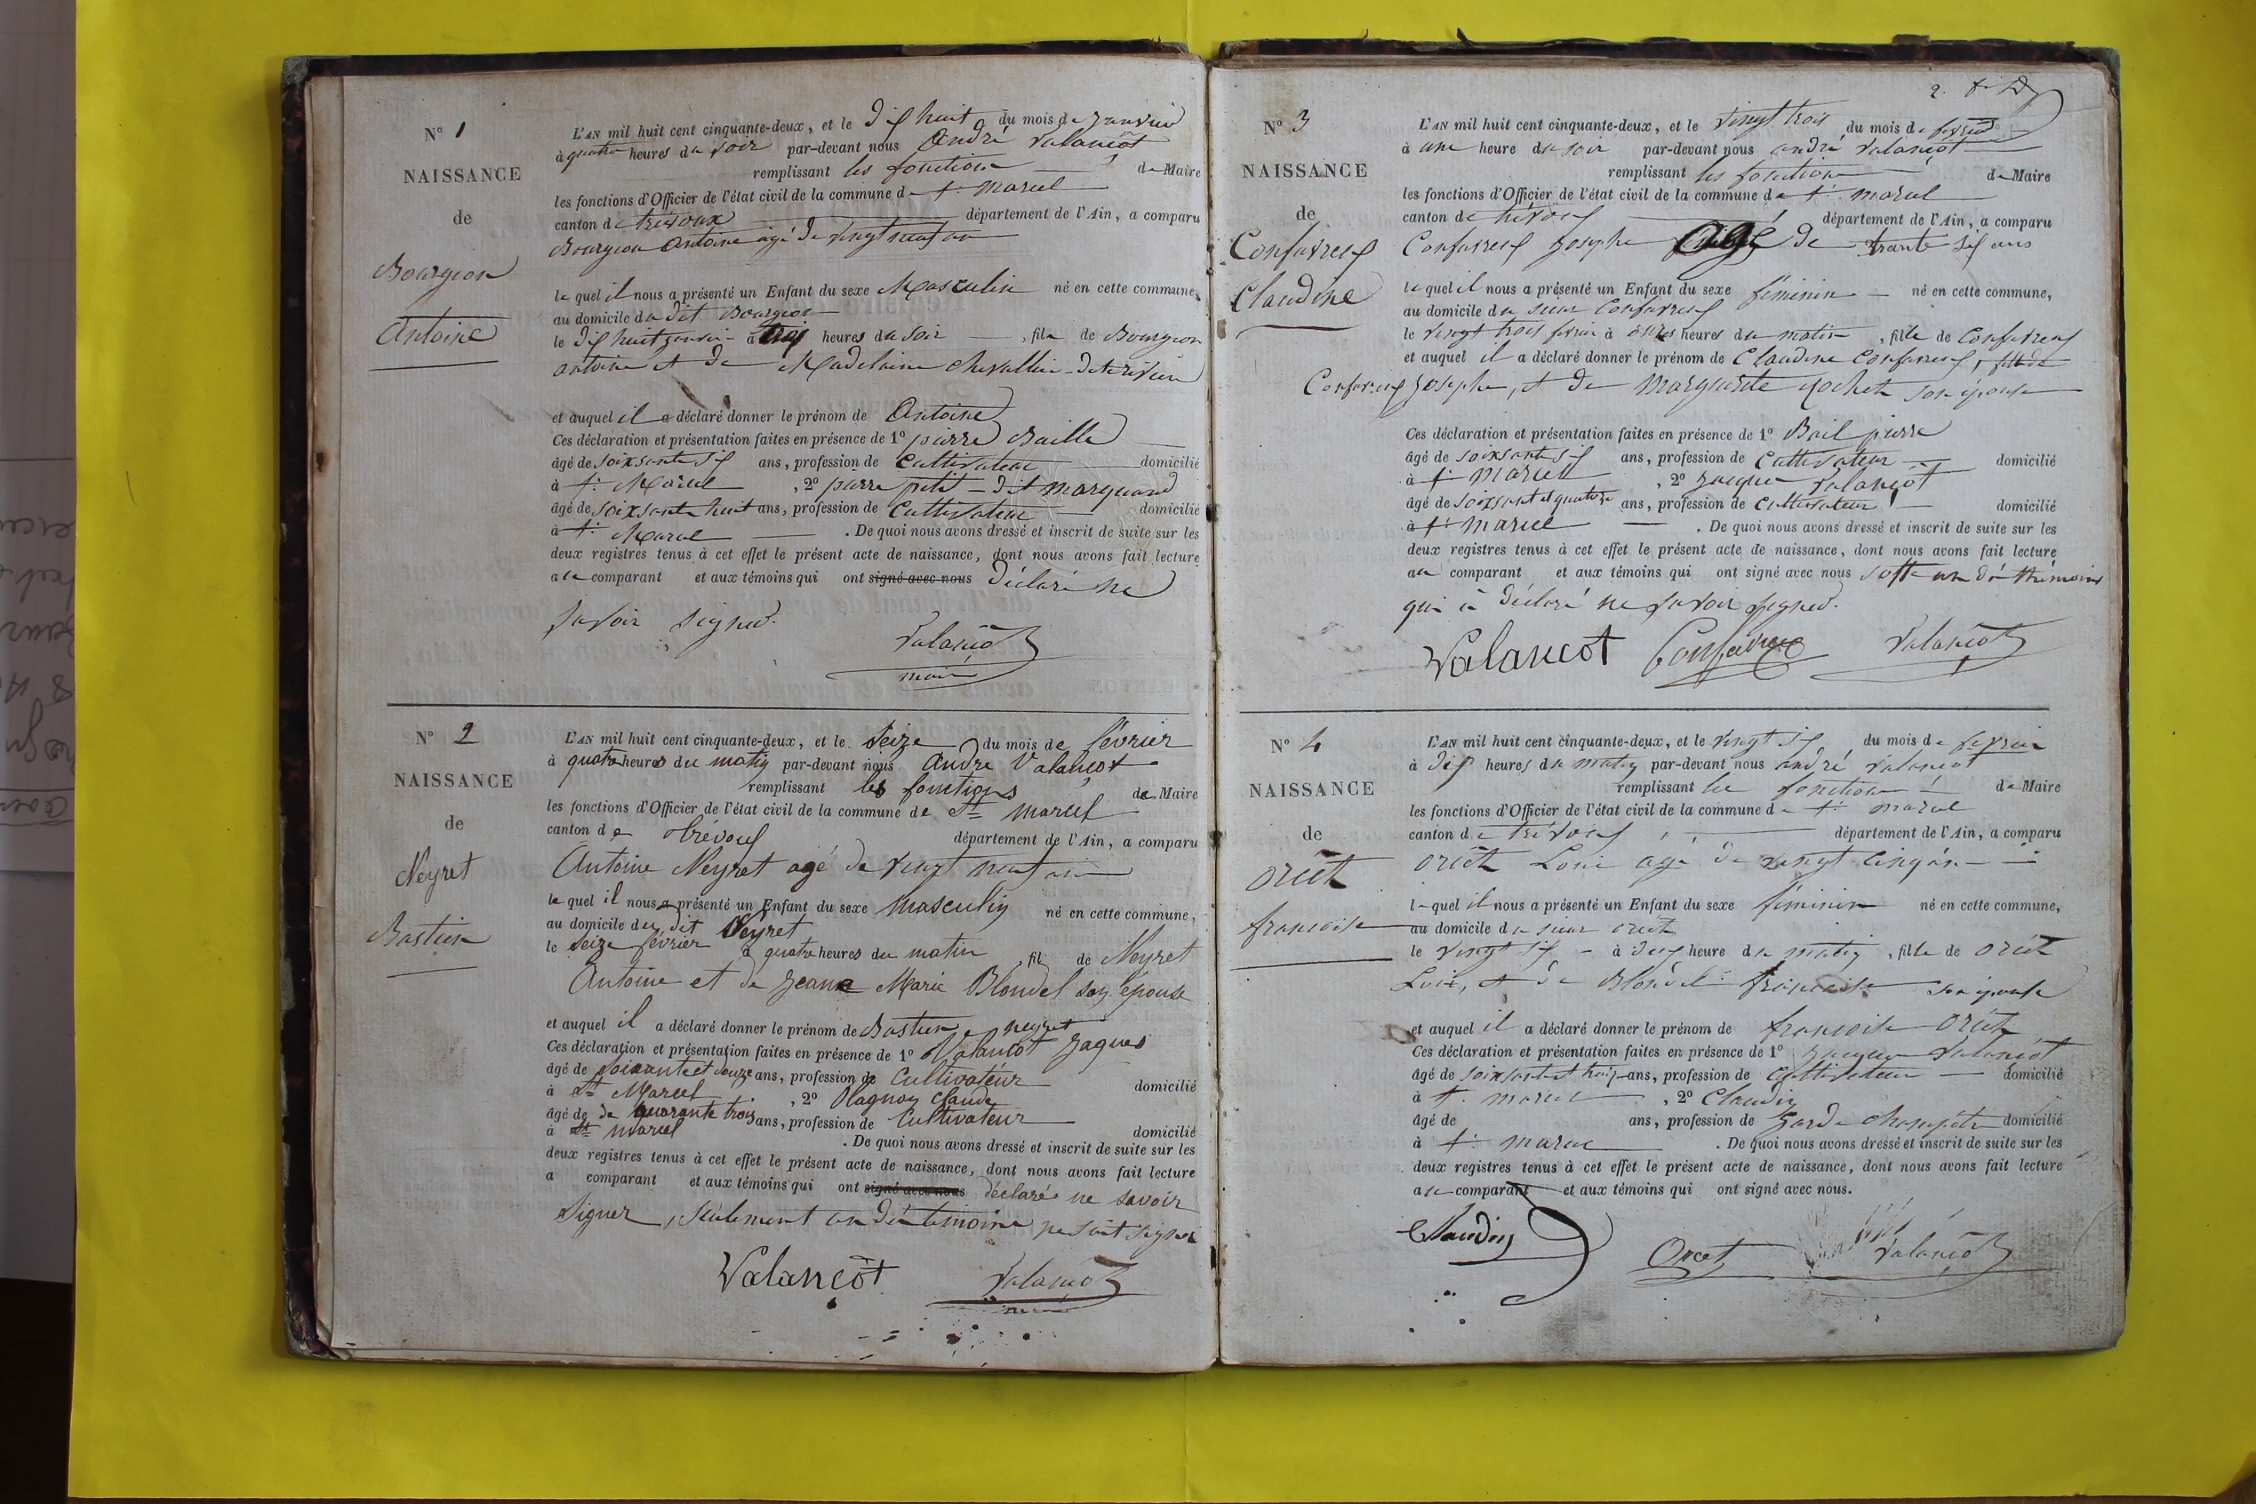 N° 1
NAISSANCE
de
Bourgeon
Antoine
L'AN mil huit cent cinquante-deux, et le dix huit du mois de janvier
à quatre heures du soir par-devant nous André Valançot
remplissant les fonctions de Maire
les fonctions d'Officier de l'état civil de la commune de St Marcel
canton de trevoux département de l'Ain, a comparu
Bourgeon Antoine agé de vingt neuf an
le quel il nous a présenté un Enfant du sexe Masculin né en cette commune,
au domicile du dit Bourgeon
le dix huit janvier à trois heures du soir, fils de Bourgeon
antoine et de Madelaine Chevallier
et auquel il a déclaré donner le prénom de Antoine
Ces déclaration et présentation faites en présence de 1° pierre Baille
âgé de soixsante six ans, profession de Cultivateur domicilié
à St Marcel, 2° pierre petit dit marquand
âgé de soixsante huit ans, profession de Cultivateur domicilié
à St Marcel. De quoi nous avons dressé et inscrit de suite sur les
deux registres tenus à cet effet le présent acte de naissance, dont nous avons fait lecture
au comparant et aux témoins qui ont signé avec nous déclaré ne
savoir signer.
Valançot
maire
N° 2
NAISSANCE
de
Neyret
Bastien
L'AN mil huit cent cinquante-deux, et le Seize du mois de février
à quatre heures du matin par-devant nous André Valançot
remplissant les fonctions de Maire
les fonctions d'Officier de l'état civil de la commune de St Marcel
canton de trévoux département de l'Ain, a comparu
Antoine Neyret agé de vingt neuf an
le quel il nous a présenté un Enfant du sexe Masculin né en cette commune,
au domicile du dit Neyret
le Seize février à quatre heures du matin fils de Neyret
Antoine et de Jeane Marie Blondel son épouse
et auquel il a déclaré donner le prénom de Bastien neyret
Ces déclaration et présentation faites en présence de 1° Valancot Jaques
âgé de soixante et douze ans, profession de Cultivateur domicilié
à St Marcel, 2° Plagnoy Claude
âgé de de quarante trois ans, profession de Cultivateur domicilié
à St Marcel. De quoi nous avons dressé et inscrit de suite sur les
deux registres tenus à cet effet le présent acte de naissance, dont nous avons fait lecture
a comparant et aux témoins qui ont signé avec nous déclaré ne savoir
Signer, seulement un des témoins signer
Valancot Valançot
N° 3
NAISSANCE
de
Confavreux
Claudine
L'AN mil huit cent cinquante-deux, et le vingt trois du mois de fevrier
à une heure du soir par-devant nous andré Valançot
remplissant les fonctions de Maire
les fonctions d'Officier de l'état civil de la commune de St marcel
canton de trévoux département de l'Ain, a comparu
Confavreux Josephe agé de trante six ans
le quel il nous a présenté un Enfant du sexe féminin né en cette commune,
au domicile du sieur Confavreux
le vingt trois fevrier à onzes heures du matin, fille de Confavreux
et auquel il a déclaré donner le prénom de Claudine Confavreux, fille de
Confavreux Josephe, et de Marguerite Rochet son épouse
Ces déclaration et présentation faites en présence de 1° Bail pierre
âgé de soixsante six ans, profession de Cultivateur domicilié
à St Marcel, 2° Jacque Valançot
âgé de soixsante et quatorze ans, profession de Cultivateur domicilié
à St Marcel. De quoi nous avons dressé et inscrit de suite sur les
deux registres tenus à cet effet le présent acte de naissance, dont nous avons fait lecture
au comparant et aux témoins qui ont signé avec nous un dé thémoins
qui à déclaré ne savoir signer.
Valancot Confavreux Valançot
N° 4
NAISSANCE
de
Orcêt
francoise
L'AN mil huit cent cinquante-deux, et le vingt six du mois de fevrier
à dix heures du matin par-devant nous andré Valançot
remplissant les fonctions de Maire
les fonctions d'Officier de l'état civil de la commune de St marcel
canton de trévoux département de l'Ain, a comparu
Orcêt Loui agé de vingt cinq an
le quel il nous a présenté un Enfant du sexe féminin né en cette commune,
au domicile du sieur orcet
le vingt six à deux heure du matin, fille de Orcêt
Loui, et de Blondel françoise son épouse
et auquel il a déclaré donner le prénom de francoise Orcêt
Ces déclaration et présentation faites en présence de 1° Jacque Valançot
âgé de ans, profession de Cultivateur domicilié
à St marcel, 2° Claudin
âgé de ans, profession de Garde Champêtre domicilié
à St marcel. De quoi nous avons dressé et inscrit de suite sur les
deux registres tenus à cet effet le présent acte de naissance, dont nous avons fait lecture
au comparant et aux témoins qui ont signé avec nous.
Claudin Orcet Valançot